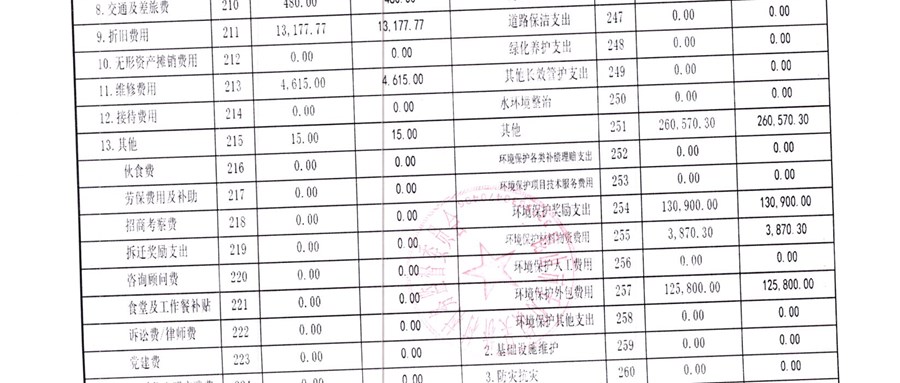 8.交通及差旅费 210 480.00 480.00
9.折旧费用 211 13,177.77 13,177.77 道路保洁支出 247 0.00 0.00
10.无形资产摊销费用 212 0.00 0.00 绿化养护支出 248 0.00 0.00
11.维修费用 213 4,615.00 4,615.00 其他长效管护支出 249 0.00 0.00
12.接待费用 214 0.00 0.00 水环境整治 250 0.00 0.00
13.其他 215 15.00 15.00 其他 251 260,570.30 260,570.30
伙食费 216 0.00 0.00 环境保护各类补偿理赔支出 252 0.00 0.00
劳保费用及补助 217 0.00 0.00 环境保护项目技术服务费用 253 0.00 0.00
招商考察费 218 0.00 0.00 环境保护奖励支出 254 130,900.00 130,900.00
拆迁奖励支出 219 0.00 0.00 环境保护材料物资费用 255 3,870.30 3,870.30
咨询顾问费 220 0.00 0.00 环境保护人工费用 256 0.00 0.00
食堂及工作餐补贴 221 0.00 0.00 环境保护外包费用 257 125,800.00 125,800.00
诉讼费/律师费 222 0.00 0.00 环境保护其他支出 258 0.00 0.00
党建费 223 0.00 0.00 2.基础设施维护 259 0.00 0.00
0.00 3.防灾抗灾 260 0.00 0.00